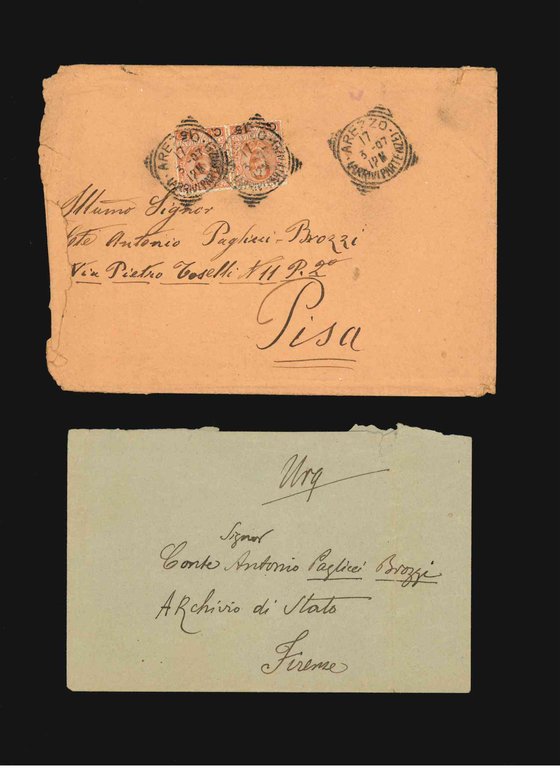 C. 15
C. 15
AREZZO
17
3-07
12M
(ARRIVI E PARTENZE)
Illumo Signor
Cte Antonio Pagliucci-Brozzi
Via Pietro Toselli N 11 P. 2º
Pisa
Urg
Signor
Conte Antonio Pagliucci Brozzi
Archivio di Stato
Firenze